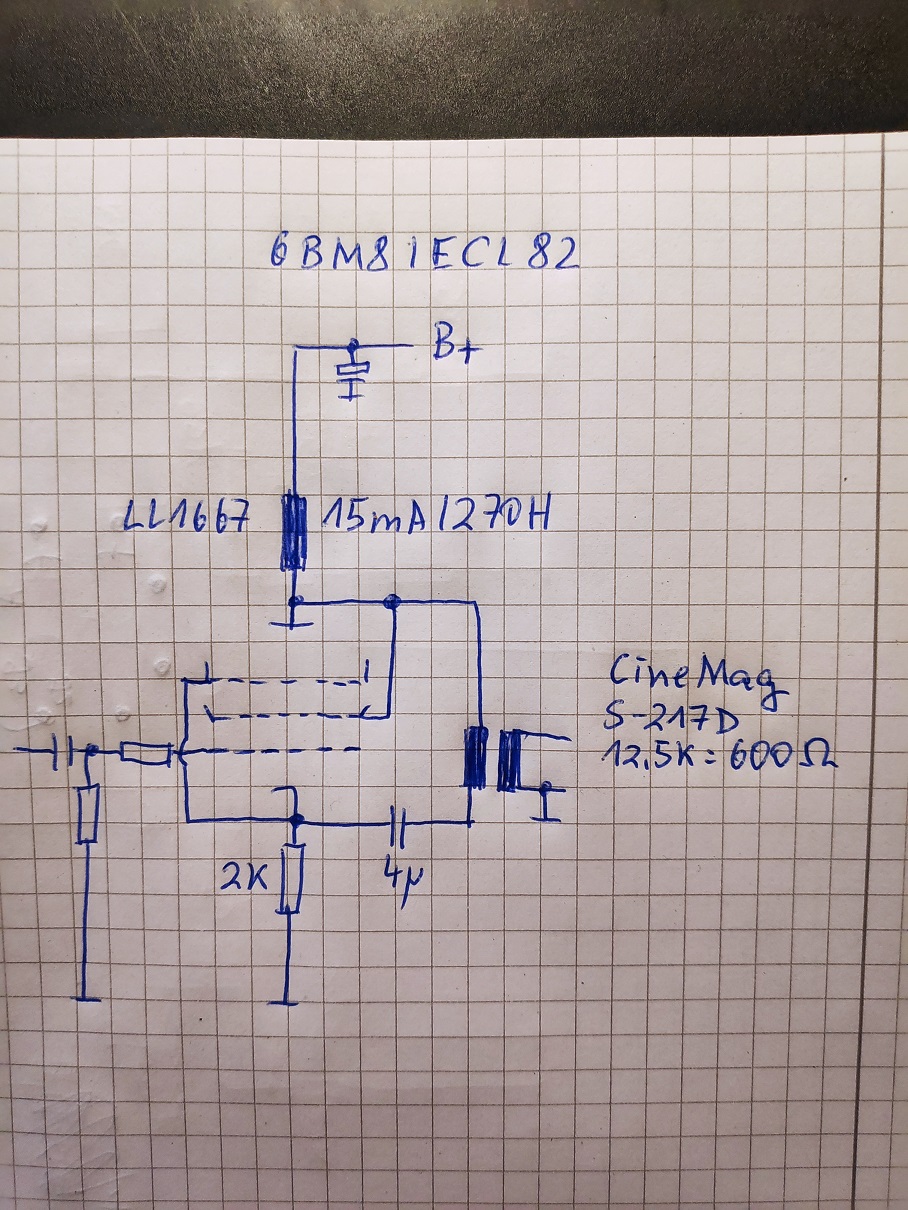 6BM8/ECL82
B+
LL1667 15mA/270H
CineMag
S-217D
12,5K:600Ω
2K
4μ